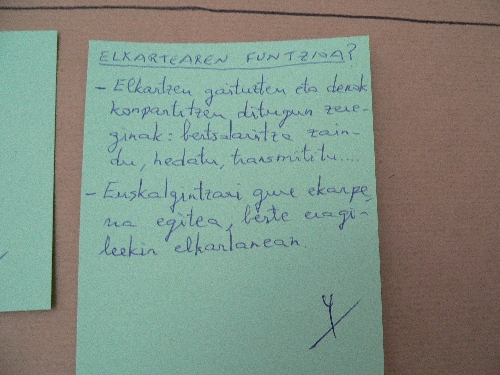 ELKARTEAREN FUNTZIOA?
- Elkartzen gaituzten eta denok
konpartitzen ditugun zere-
ginak: bertsolaritza zain-
du, hedatu, transmititu....
- Euskalgintzari gure ekarpe
na egitea, beste eragi-
leekin elkarlanean.
Y